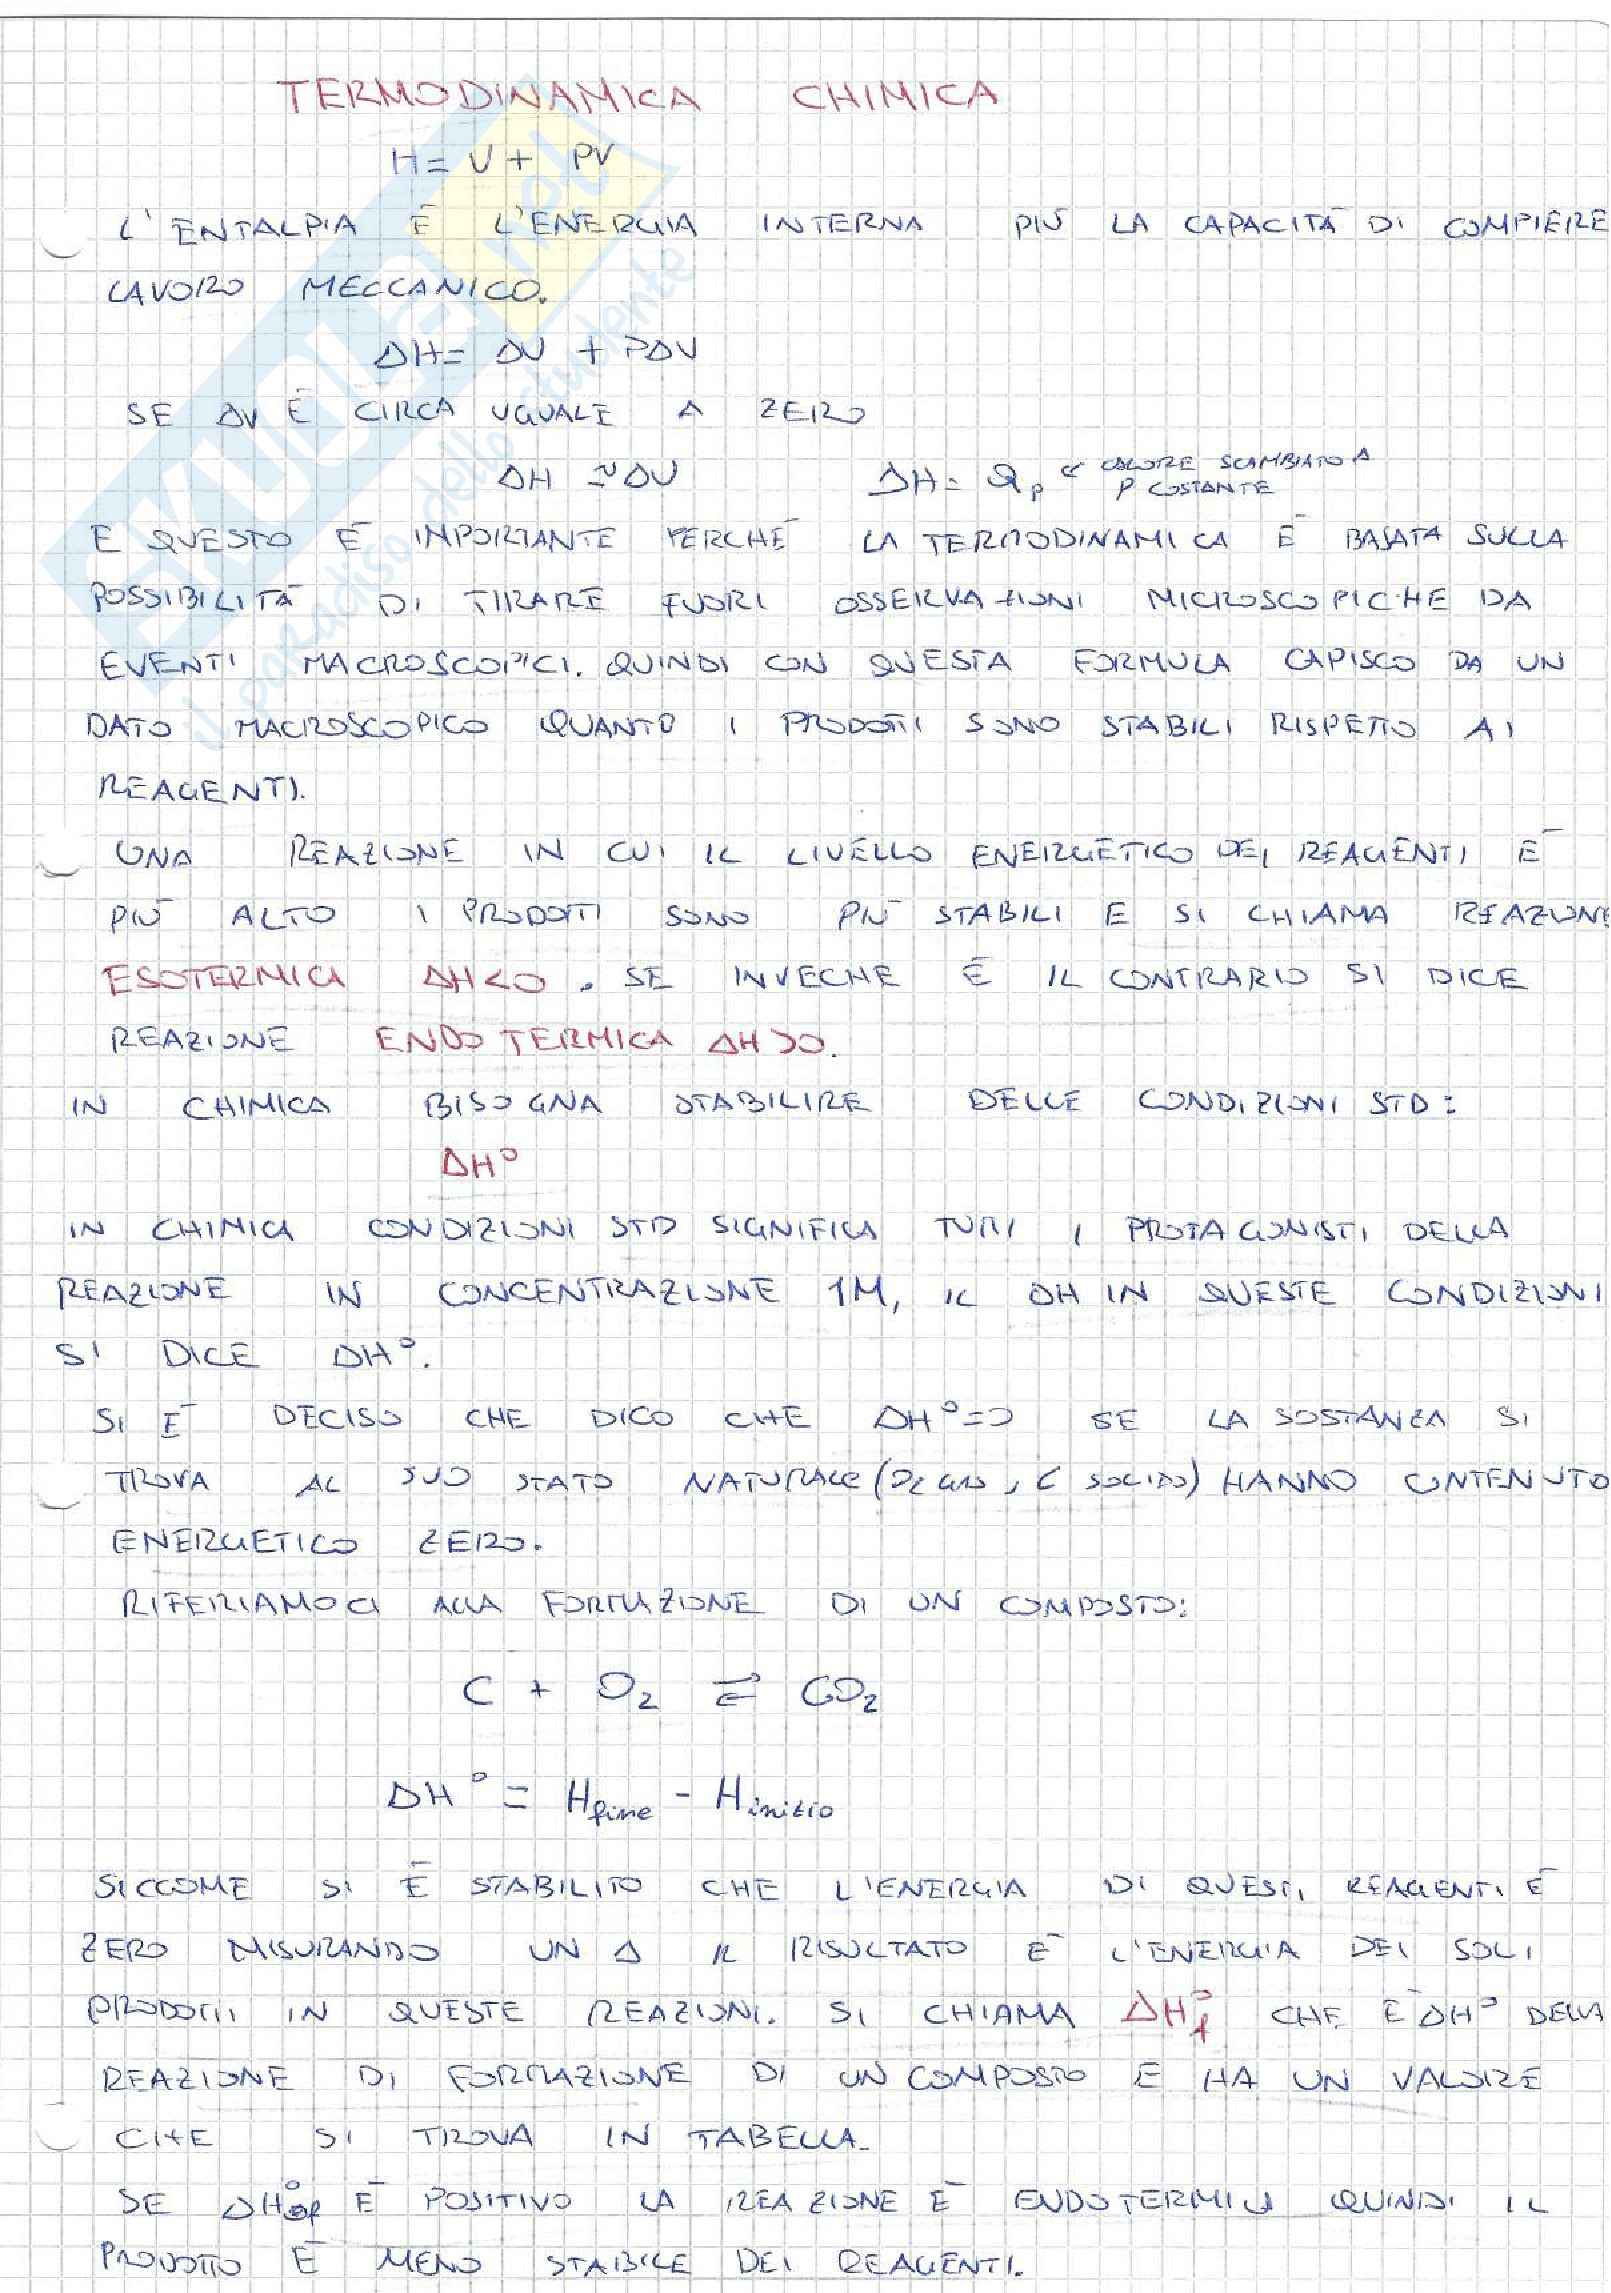 TERMODINAMICA CHIMICA
H = U + PV
L'ENTALPIA È L'ENERGIA INTERNA PIÙ LA CAPACITÀ DI COMPIERE
LAVORO MECCANICO.
ΔH = ΔU + PΔV
SE ΔV È CIRCA UGUALE A ZERO
ΔH ≃ ΔU ΔH = Qp ← CALORE SCAMBIATO A P COSTANTE
E QUESTO È INPORTANTE PERCHÉ LA TERMODINAMICA È BASATA SULLA
POSSIBILITÀ DI TIRARE FUORI OSSERVAZIONI MICROSCOPICHE DA
EVENTI MACROSCOPICI. QUINDI CON QUESTA FORMULA CAPISCO DA UN
DATO MACROSCOPICO QUANTO I PRODOTTI SONO STABILI RISPETTO AI
REAGENTI.
UNA REAZIONE IN CUI IL LIVELLO ENERGETICO DEI REAGENTI È
PIÙ ALTO I PRODOTTI SONO PIÙ STABILI E SI CHIAMA REAZIONE
ESOTERMICA ΔH<0. SE INVECHE È IL CONTRARIO SI DICE
REAZIONE ENDOTERMICA ΔH>0.
IN CHIMICA BISOGNA STABILIRE DELLE CONDIZIONI STD:
ΔH°
IN CHIMICA CONDIZIONI STD SIGNIFICA TUTTI I PROTAGONISTI DELLA
REAZIONE IN CONCENTRAZIONE 1M, IL ΔH IN QUESTE CONDIZIONI
SI DICE ΔH°.
SI È DECISO CHE DICO CHE ΔH°=0 SE LA SOSTANZA SI
TROVA AL SUO STATO NATURALE (O₂ GAS, C SOLIDO) HANNO CONTENUTO
ENERGETICO ZERO.
RIFERIAMOCI ALLA FORMAZIONE DI UN COMPOSTO:
C + O₂ ⇌ CO₂
ΔH° = Hfine - Hinizio
SICCOME SI È STABILITO CHE L'ENERGIA DI QUESTI REAGENTI È
ZERO MISURANDO UN Δ IL RISULTATO È L'ENERGIA DEI SOLI
PRODOTTI IN QUESTE REAZIONI. SI CHIAMA ΔH°f CHE È ΔH° DELLA
REAZIONE DI FORMAZIONE DI UN COMPOSTO E HA UN VALORE
CHE SI TROVA IN TABELLA.
SE ΔH°f È POSITIVO LA REAZIONE È ENDOTERMICA QUINDI IL
PRODOTTO È MENO STABILE DEI REAGENTI.
SKUOLA.net
il paradiso dello studente